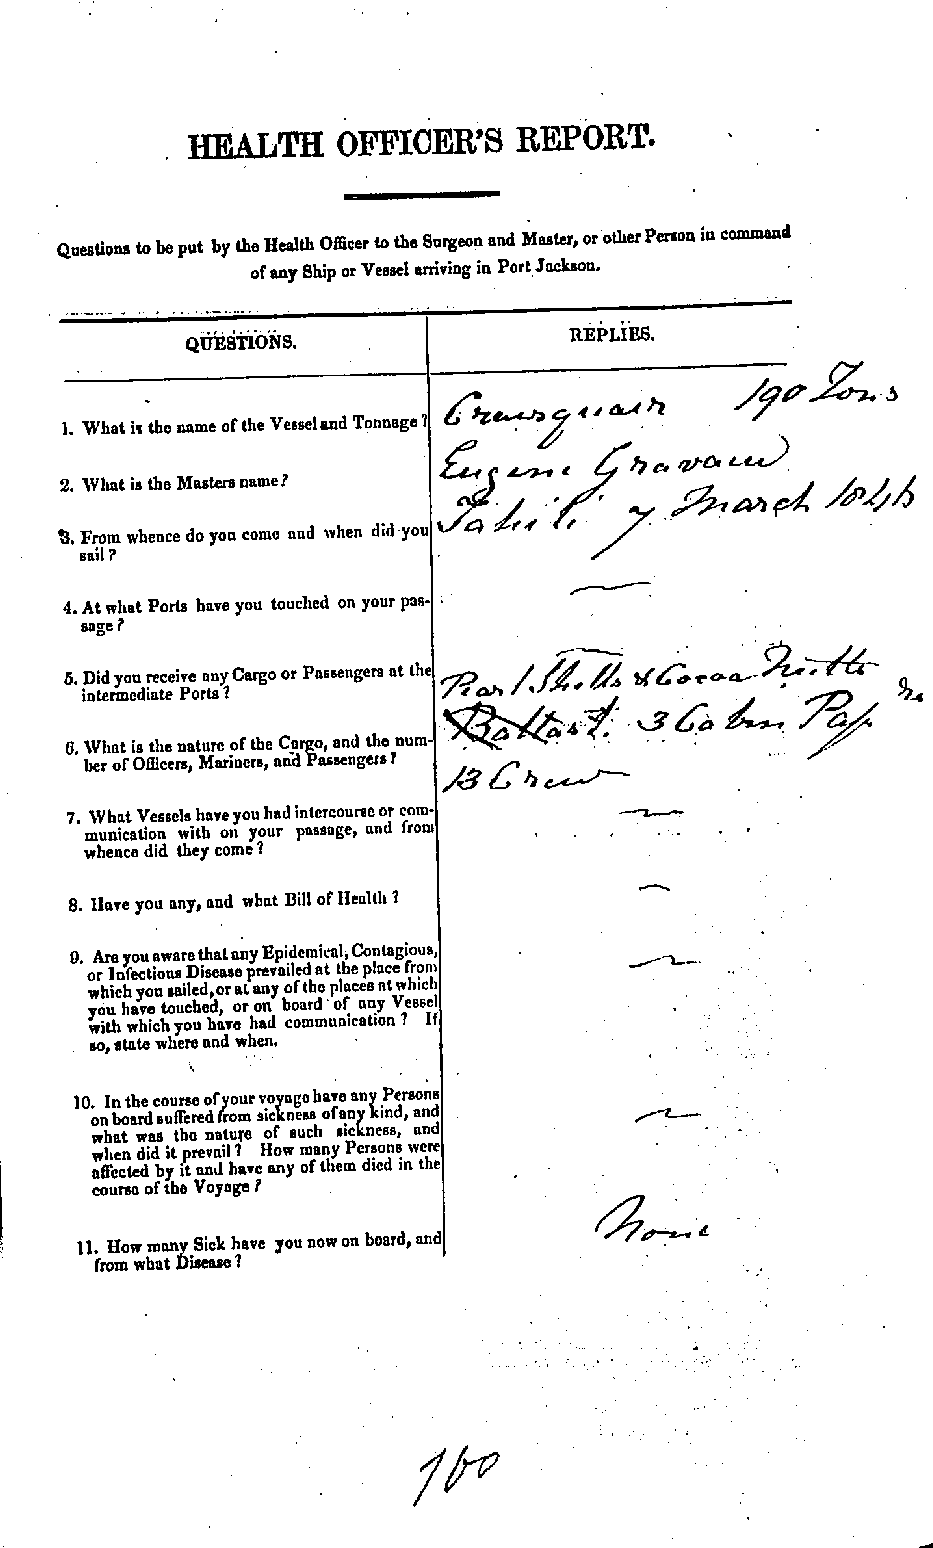 HEALTH OFFICER'S REPORT.
Questions to be put by the Health Officer to the Surgeon and Master, or other Person in command
of any Ship or Vessel arriving in Port Jackson.
QUESTIONS.
REPLIES.
1. What is the name of the Vessel and Tonnage?
190 Tons
2. What is the Masters name?
Eugene
3. From whence do you come and when did you
sail?
Tahiti 7 March 1846
4. At what Ports have you touched on your pas-
sage?
—
5. Did you receive any Cargo or Passengers at the
intermediate Ports?
—
6. What is the nature of the Cargo, and the num-
ber of Officers, Mariners, and Passengers?
Pearl Shells & Cocoa Nutts
Ballast. 3 Cabin Pass
13 Crew
7. What Vessels have you had intercourse or com-
munication with on your passage, and from
whence did they come?
—
8. Have you any, and what Bill of Health?
—
9. Are you aware that any Epidemical, Contagious,
or Infectious Disease prevailed at the place from
which you sailed, or at any of the places at which
you have touched, or on board of any Vessel
with which you have had communication? If
so, state where and when.
—
10. In the course of your voyage have any Persons
on board suffered from sickness of any kind, and
what was the nature of such sickness, and
when did it prevail? How many Persons were
affected by it and have any of them died in the
course of the Voyage?
—
11. How many Sick have you now on board, and
from what Disease?
None
100